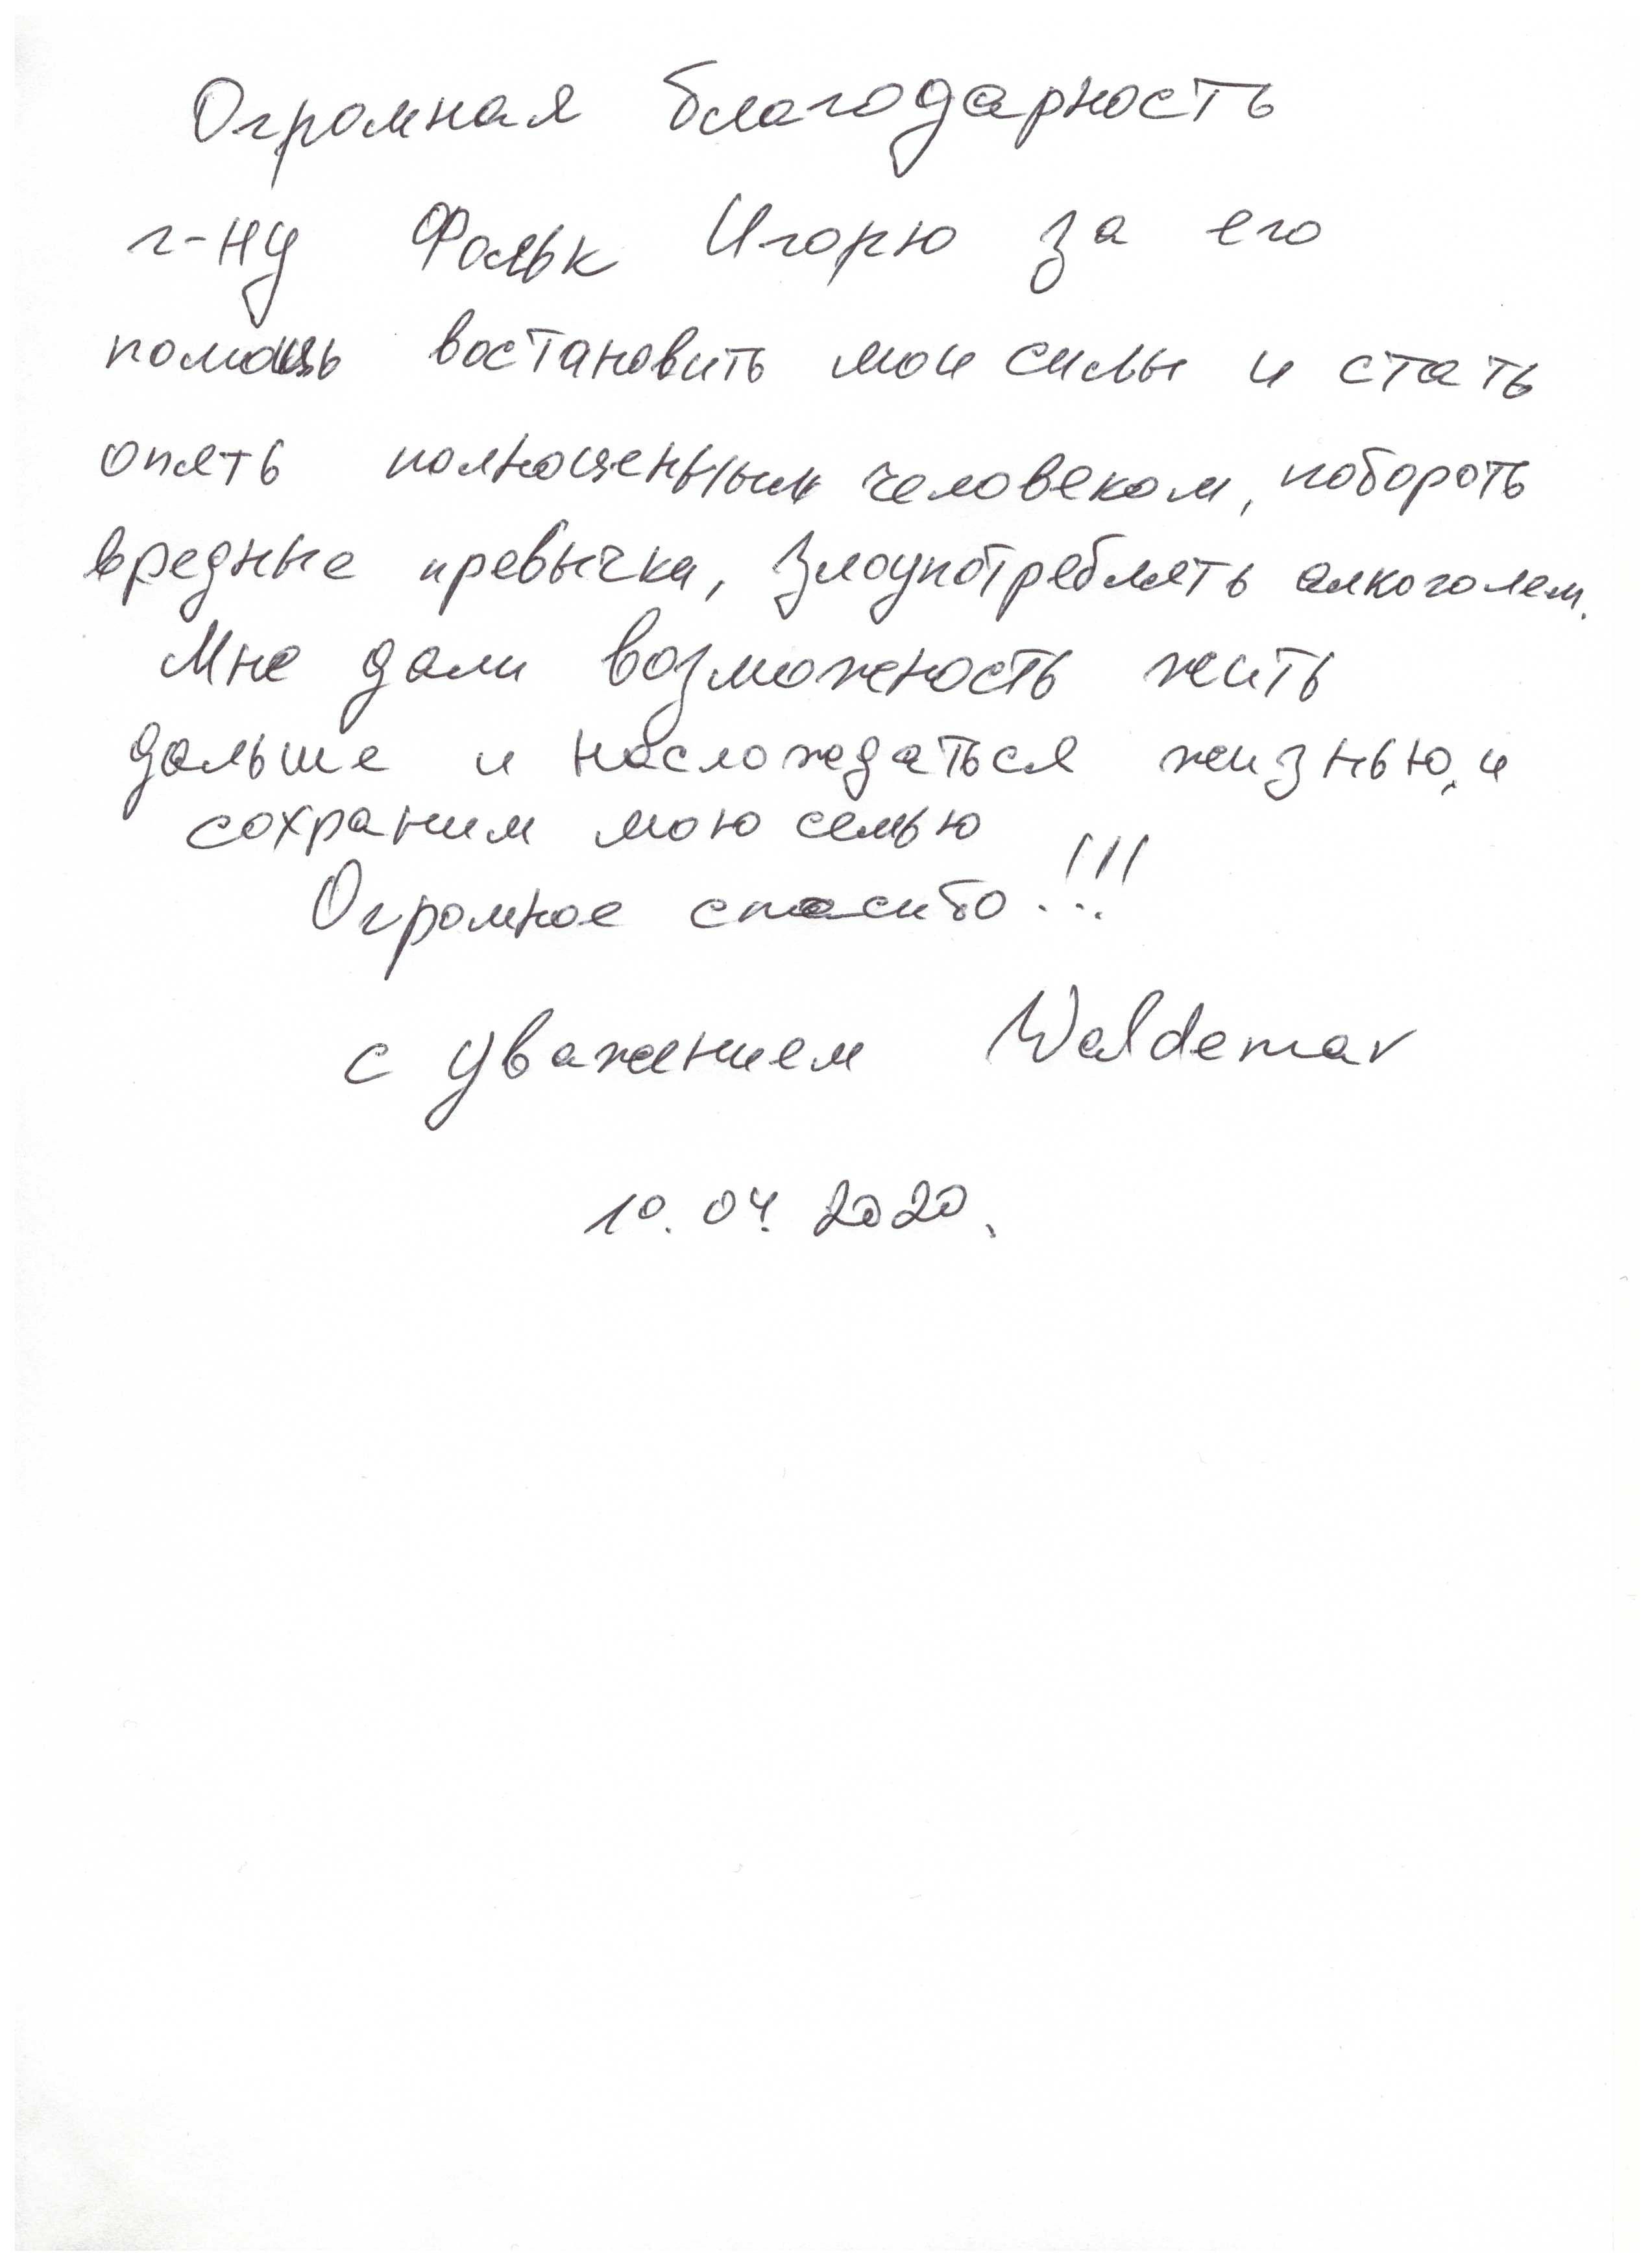 Огромная благодарность
г-ну Фольк Игорю за его
помощь востановить мои силы и стать
опять полноценным человеком, побороть
вредные превычки, злоупотреблять алкоголем.
Мне дали возможность жить
дальше и наслождаться жизнью, и
сохраним мою семью
Огромное спасибо!!!
с уважением Waldemar
10.04.2020.